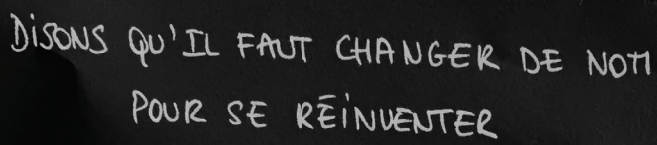 DISONS QU'IL FAUT CHANGER DE NOM
POUR SE RÉINVENTER